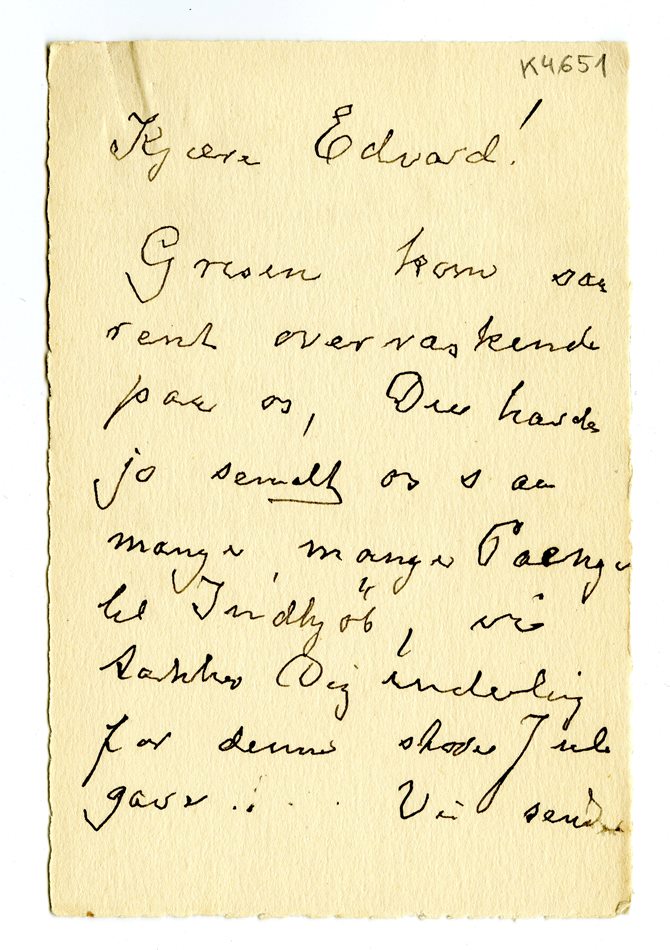 K4651
Kjære Edvard!
Grisen kom saa
rent overraskende
paa os, Du havde
jo sendt os saa
mange, mange Pænge
til Indkjöb, vi
takker Dig inderlig
for denne store Jule
gave ! . . . Vi sender